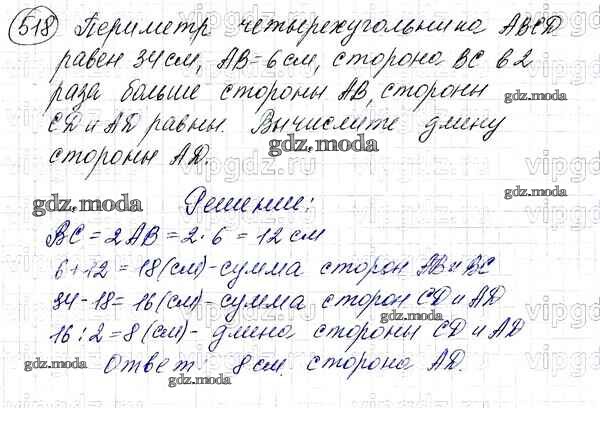 518 Периметр четырехугольника ABCD
равен 34 см, AB = 6 см, сторона BC в 2
раза больше стороны AB, стороны
CD и AD равны. Вычислите длину
стороны AD.
Решение:
BC = 2AB = 2·6 = 12 см
6+12 = 18(см)-сумма сторон AB и BC
34-18= 16(см)-сумма сторон CD и AD
16:2=8(см)- длина стороны CD и AD
Ответ: 8 см. сторона AD.
gdz.moda
gdz.moda
gdz.moda
gdz.moda
gdz.moda
gdz.moda
gdz.moda
gdz.moda
vipgdz.ru
vipgdz.ru